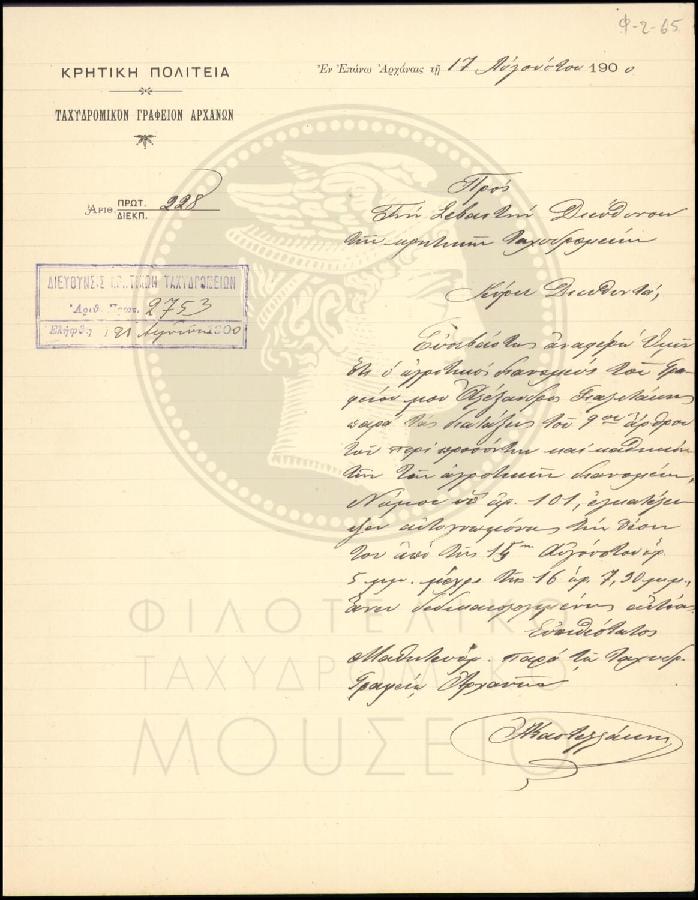 Φ-2-65
ΚΡΗΤΙΚΗ ΠΟΛΙΤΕΙΑ
ΤΑΧΥΔΡΟΜΙΚΟΝ ΓΡΑΦΕΙΟΝ ΑΡΧΑΝΩΝ
Ἐν Ἐπάνω Ἀρχάναις τῇ 17 Αὐγούστου 1900
Ἀριθ. ΠΡΩΤ. 228
ΔΙΕΚΠ.
ΔΙΕΥΘΥΝΣΙΣ ΚΡΗΤΙΚΩΝ ΤΑΧΥΔΡΟΜΕΙΩΝ
Ἀριθ. Πρωτ. 2753
Ἐλήφθη 21 Αὐγούστου 1900
Πρὸς
Τὴν Σεβαστὴν Διεύθυνσιν
τῶν κρητικῶν ταχυδρομείων
Κύριε Διευθυντά,
Εὐσεβάστως ἀναφέρω Ὑμῖν
ὅτι ὁ ἀγροτικὸς διανομεὺς τοῦ Γρα-
φείου μου Ἀλέξανδρος
παρὰ τὰς διατάξεις τοῦ 9ου ἄρθρου
τοῦ περὶ προσόντων καὶ καθηκόν-
των τῶν ἀγροτικῶν διανομέων,
Νόμου ὑπ' ἀρ. 101, ἐγκατέλει-
ψεν αὐτογνωμόνως τὴν θέσιν
του ἀπὸ τῆς 15ης Αὐγούστου ὥρ.
5 μ.μ. μέχρι τῆς 16 ὥρ. 7,30 μ.μ.,
ἄνευ δεδικαιολογημένης αἰτίας.
Εὐπειθέστατος
παρὰ τῷ ταχυδρ.
Γραφείῳ Ἀρχανῶν
Καστελλάκης
ΦΙΛΟΤΕΛΙΚΟ
ΤΑΧΥΔΡΟΜΙΚΟ
ΜΟΥΣΕΙΟ